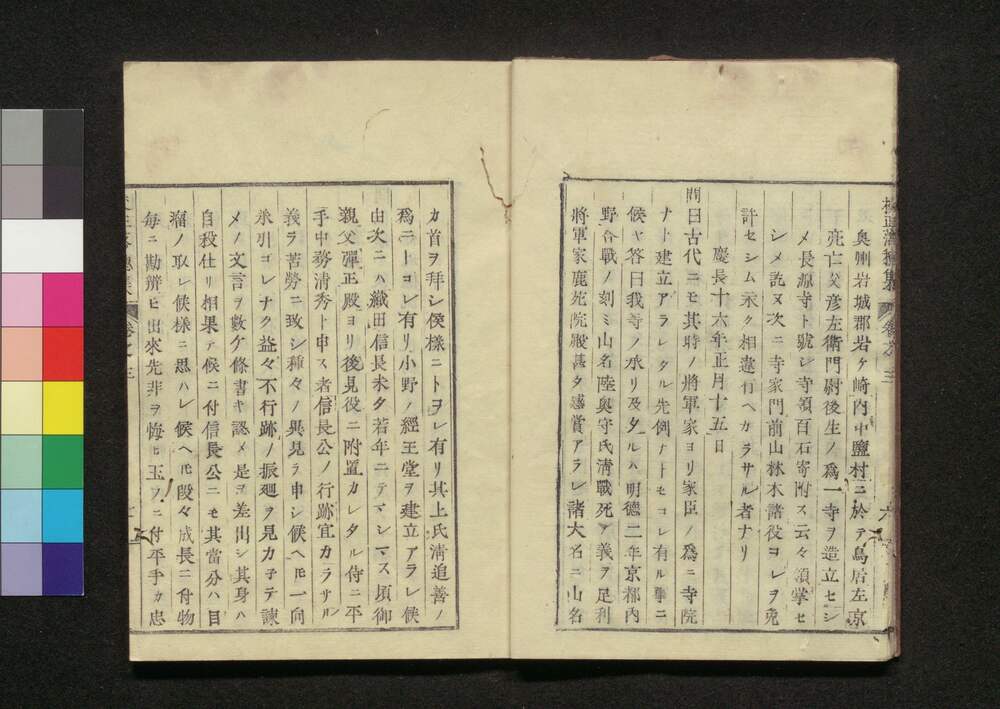 校正落穂集
奥州岩城郡岩ケ崎内中鹽村ニ於テ鳥居左京
亮亡父彦左衛門尉後生ノ爲一寺ヲ造立セシ
メ長源寺ト號シ寺領百石寄附ス云々領掌セ
シメ訖ヌ次ニ寺家門前山林木諸役コレヲ免
許セシム永ク相違有ヘカラサル者ナリ
慶長十六年正月十五日
問曰古代ニモ其時ノ將軍家ヨリ家臣ノ爲ニ寺院
ナト建立アラレタル先例ナトモコレ有ル事ニ
候ヤ答曰我等ノ承リ及タルハ明德二年京都内
野合戰ノ刻ミ山名陸奥守氏清戰死ノ義ヲ足利
將軍家鹿苑院殿甚タ感賞アラレ諸大名ニ山名
カ首ヲ拜シ候樣ニトヲレ有リ其上氏清追善ノ
爲ニトコレ有リ小野ノ經王堂ヲ建立アラレ候
由次ニハ織田信長未タ若年ニテマシマス頃御
親父彈正殿ヨリ後見役ニ附置カレタル侍ニ平
手中務清秀ト申ス者信長公ノ行跡宜カラサル
義ヲ苦勞ニ致シ種々ノ異見ヲ申シ候ヘ𪜈一向
承引コレナク益々不行跡ノ振廻ヲ見カ子テ諫
メノ文言ヲ數ケ條書キ認メ是ヲ差出シ其身ハ
自殺仕リ相果テ候ニ付信長公ニモ其當分ハ目
溜ノ取レ候樣ニ思ハレ候ヘ𪜈段々成長ニ付物
毎ニ勘辨ヒ出來先非ヲ悔ヒ玉フニ付平手カ忠